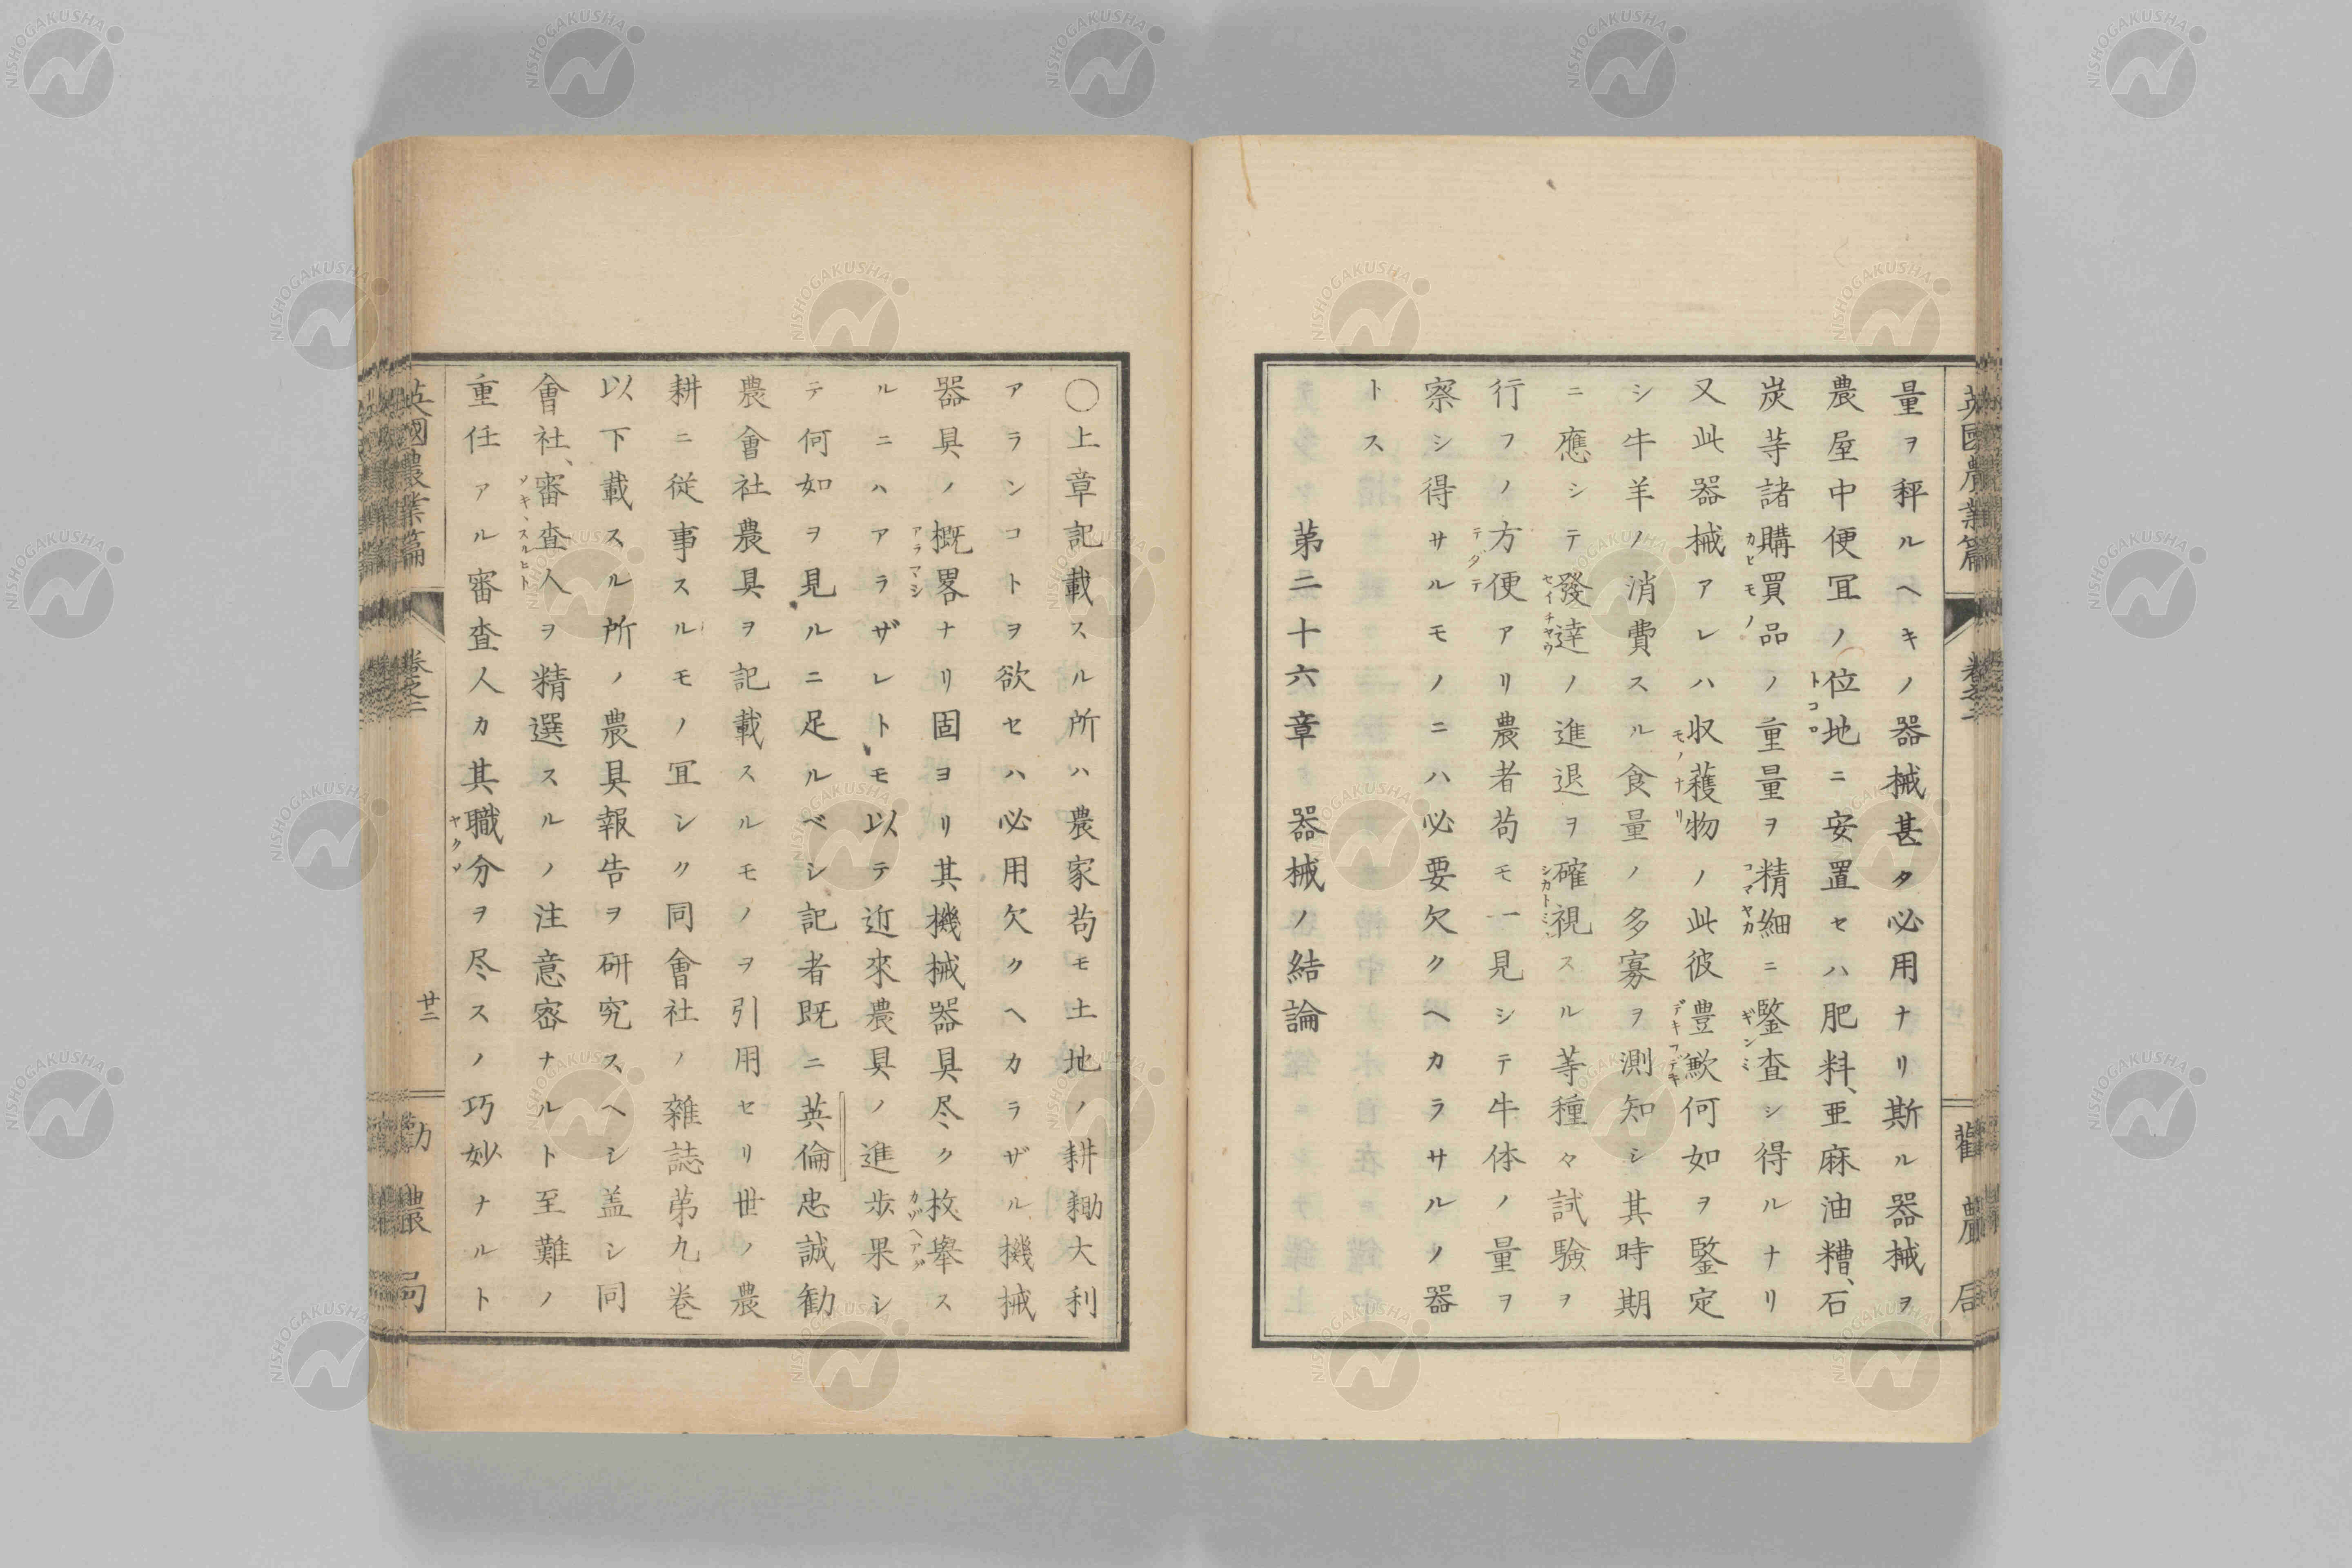 英國農業篇 卷之二 勸農局
量ヲ秤ルヘキノ器械甚タ必用ナリ斯ル器械ヲ
農屋中便冝ノ位地ニ安置セハ肥料、亜麻油糟、石
トコロ
炭等諸購買品ノ重量ヲ精細ニ鑒査シ得ルナリ
カヒモノ
コマヤカ
ギンミ
又此器械アレハ収穫物ノ此彼豊歉何如ヲ鑒定
モノナリ
デキフデキ
シ牛羊ノ消費スル食量ノ多寡ヲ測知シ其時期
ニ應シテ發達ノ進退ヲ確視スル等種々試驗ヲ
セイチヤウ
シカトミ
行フノ方便アリ農者苟モ一見シテ牛体ノ量ヲ
テダテ
察シ得サルモノニハ必要欠クヘカラサルノ器
トス
第二十六章 器械ノ結論
〇上章記載スル所ハ農家苟モ土地ノ耕耡大利
アランコトヲ欲セハ必用欠クヘカラザル機械
器具ノ概畧ナリ固ヨリ其機械器具尽ク枚擧ス
アラマシ
カゾヘアグ
ルニハアラザレトモ以テ近來農具ノ進歩果シ
テ何如ヲ見ルニ足ルベシ記者既ニ英倫忠誠勧
農會社農具ヲ記載スルモノヲ引用セリ世ノ農
耕ニ従事スルモノ冝シク同會社ノ雜誌第九巻
以下載スル所ノ農具報告ヲ研究スヘシ盖シ同
會社、審査人ヲ精選スルノ注意宻ナルト至難ノ
重任アル審査人カ其職分ヲ尽スノ巧妙ナルト
ヤクソ
英國農業篇 卷之二 廿二 勸農局
NISHOGAKUSHA